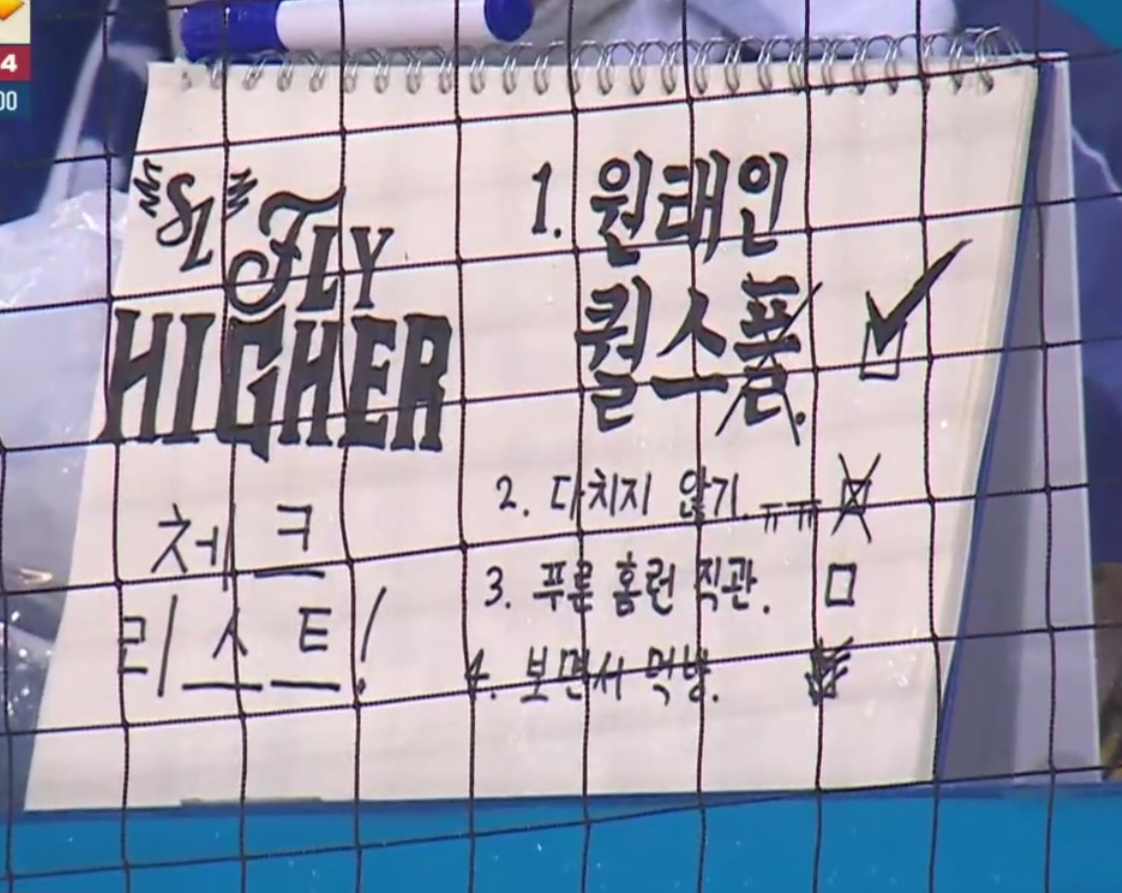 4
00
"SL" FLY
HIGHER
체크
리스트!
1. 원태인
퀄스
2. 다치지 않기. ㅠㅠ
3. 푸른 홈런 직관.
4. 보면서 먹방.